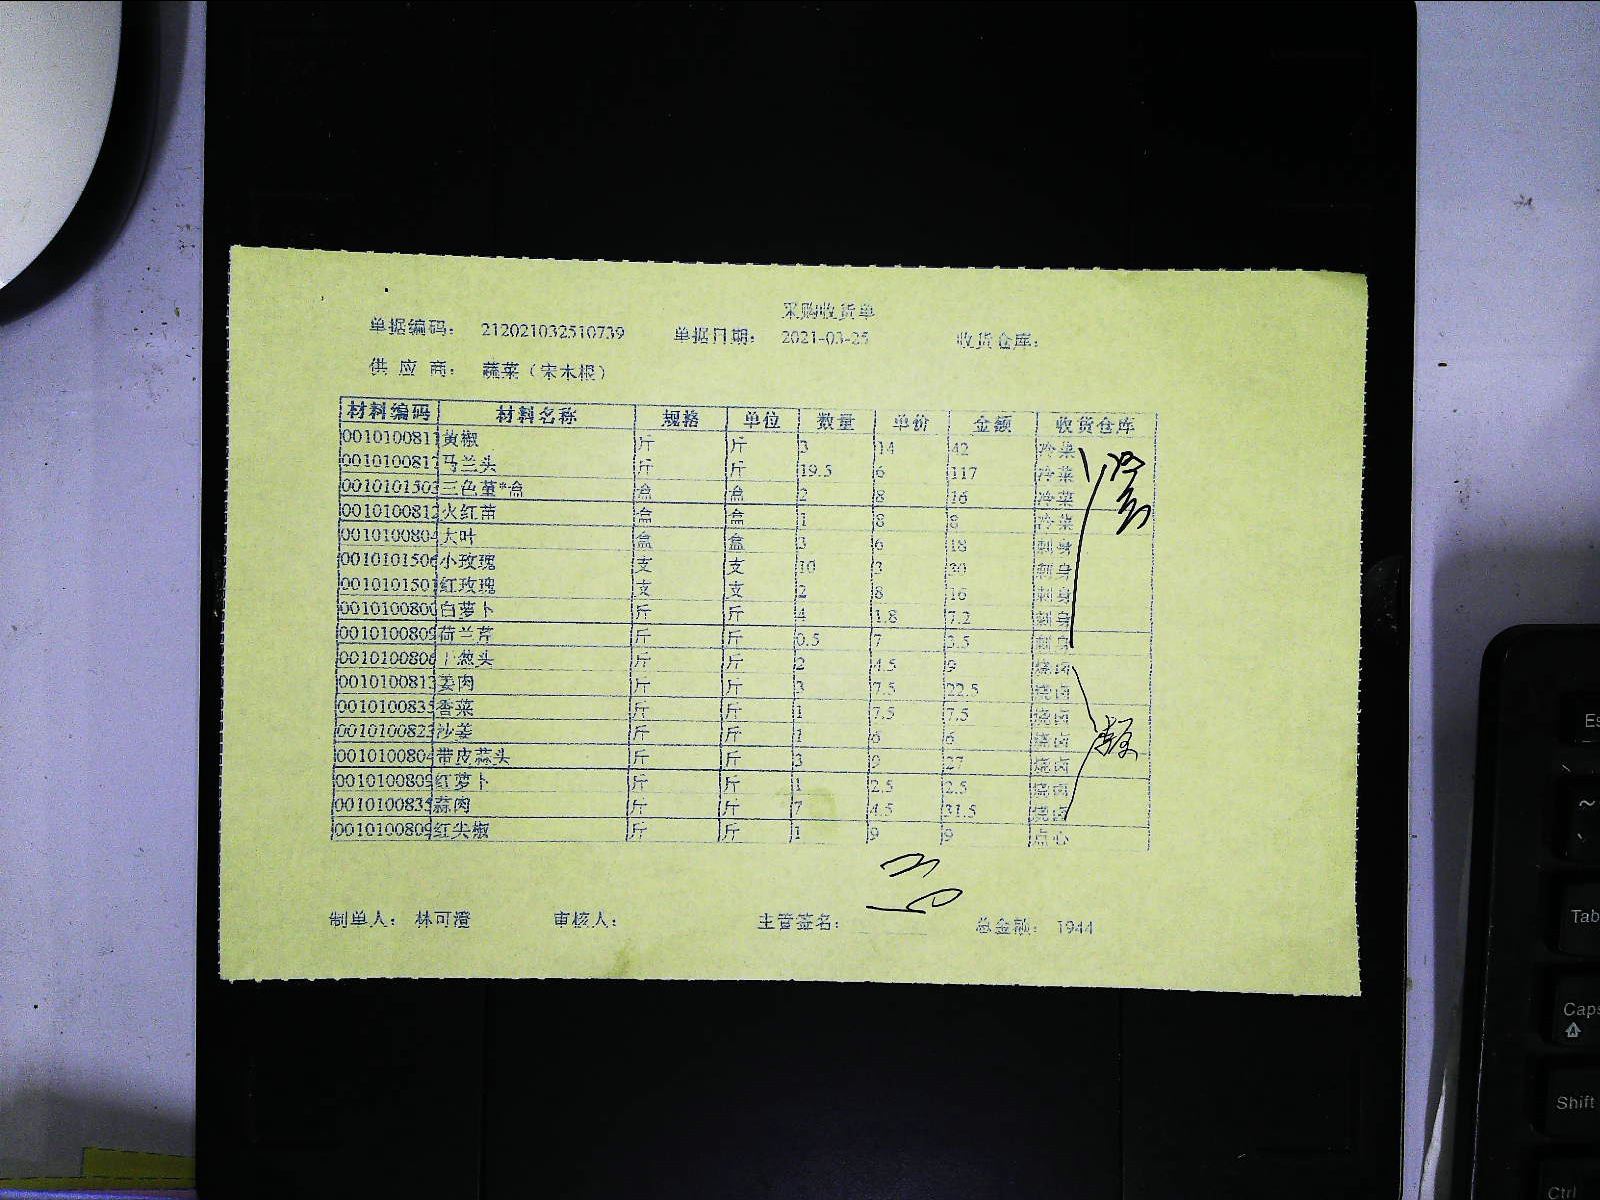 采购收货单
单据编码： 212021032510739 单据日期： 2021-03-25 收货仓库：
供 应 商： 蔬菜（宋木根）
材料编码 材料名称 规格 单位 数量 单价 金额 收货仓库
0010100811 黄椒 斤 斤 3 14 42 冷菜
0010100817 马兰头 斤 斤 19.5 6 117 冷菜
0010101503 三色堇*盒 盒 盒 2 8 16 冷菜
0010100812 火红苗 盒 盒 1 8 8 冷菜
0010100804 大叶 盒 盒 3 6 18 刺身
0010101506 小玫瑰 支 支 10 3 30 刺身
0010101501 红玫瑰 支 支 2 8 16 刺身
0010100800 白萝卜 斤 斤 4 1.8 7.2 刺身
0010100809 荷兰芹 斤 斤 0.5 7 3.5 刺身
0010100806 干葱头 斤 斤 2 4.5 9 烧卤
0010100813 姜肉 斤 斤 3 7.5 22.5 烧卤
0010100835 香菜 斤 斤 1 7.5 7.5 烧卤
0010100823 沙姜 斤 斤 1 6 6 烧卤
0010100804 带皮蒜头 斤 斤 3 9 27 烧卤
0010100809 红萝卜 斤 斤 1 2.5 2.5 烧卤
0010100835 蒜肉 斤 斤 7 4.5 31.5 烧卤
0010100809 红尖椒 斤 斤 1 9 9 点心
制单人： 林可澄 审核人： 主管签名： 总金额： 1944
Tab
Caps
Shift
Ctrl